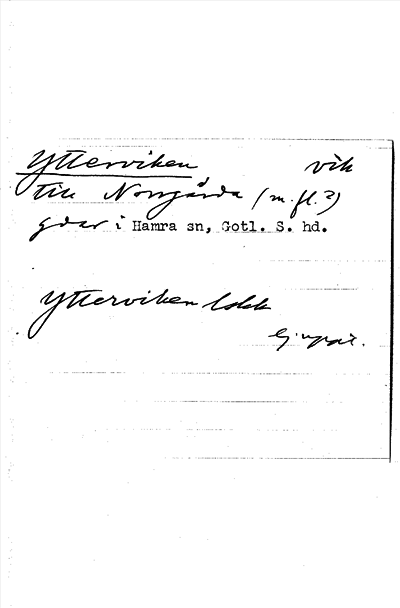 Ytterviken vik
till Norrgårda (m.fl.?)
gdar i Hamra sn, Gotl. S. hd.
Ytterviken Ldkk
Ej uppt.